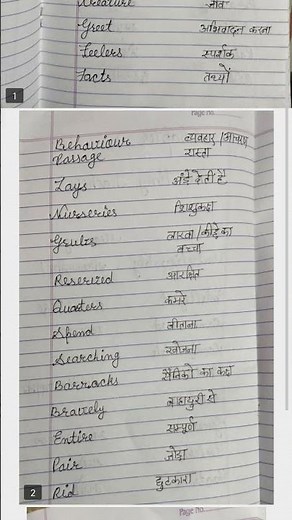 Creature जीव
Greet अभिवादन करना
Feelers स्पर्शक
Facts तथ्यों
1
Page No.
Behaviour व्यवहार/आचरण
Passage रास्ता
Lays अंडे देती है
Nurseries शिशुकक्ष
Grubs लारवा/कीड़े का
बच्चा
Reserved आरक्षित
Quaters कमरे
Spend बीताना
Searching खोजना
Barracks सैनिकों का कक्ष
Bravely बहादुरी से
Entire सम्पूर्ण
Pair जोड़ा
Rid छुटकारा
2
Page No.